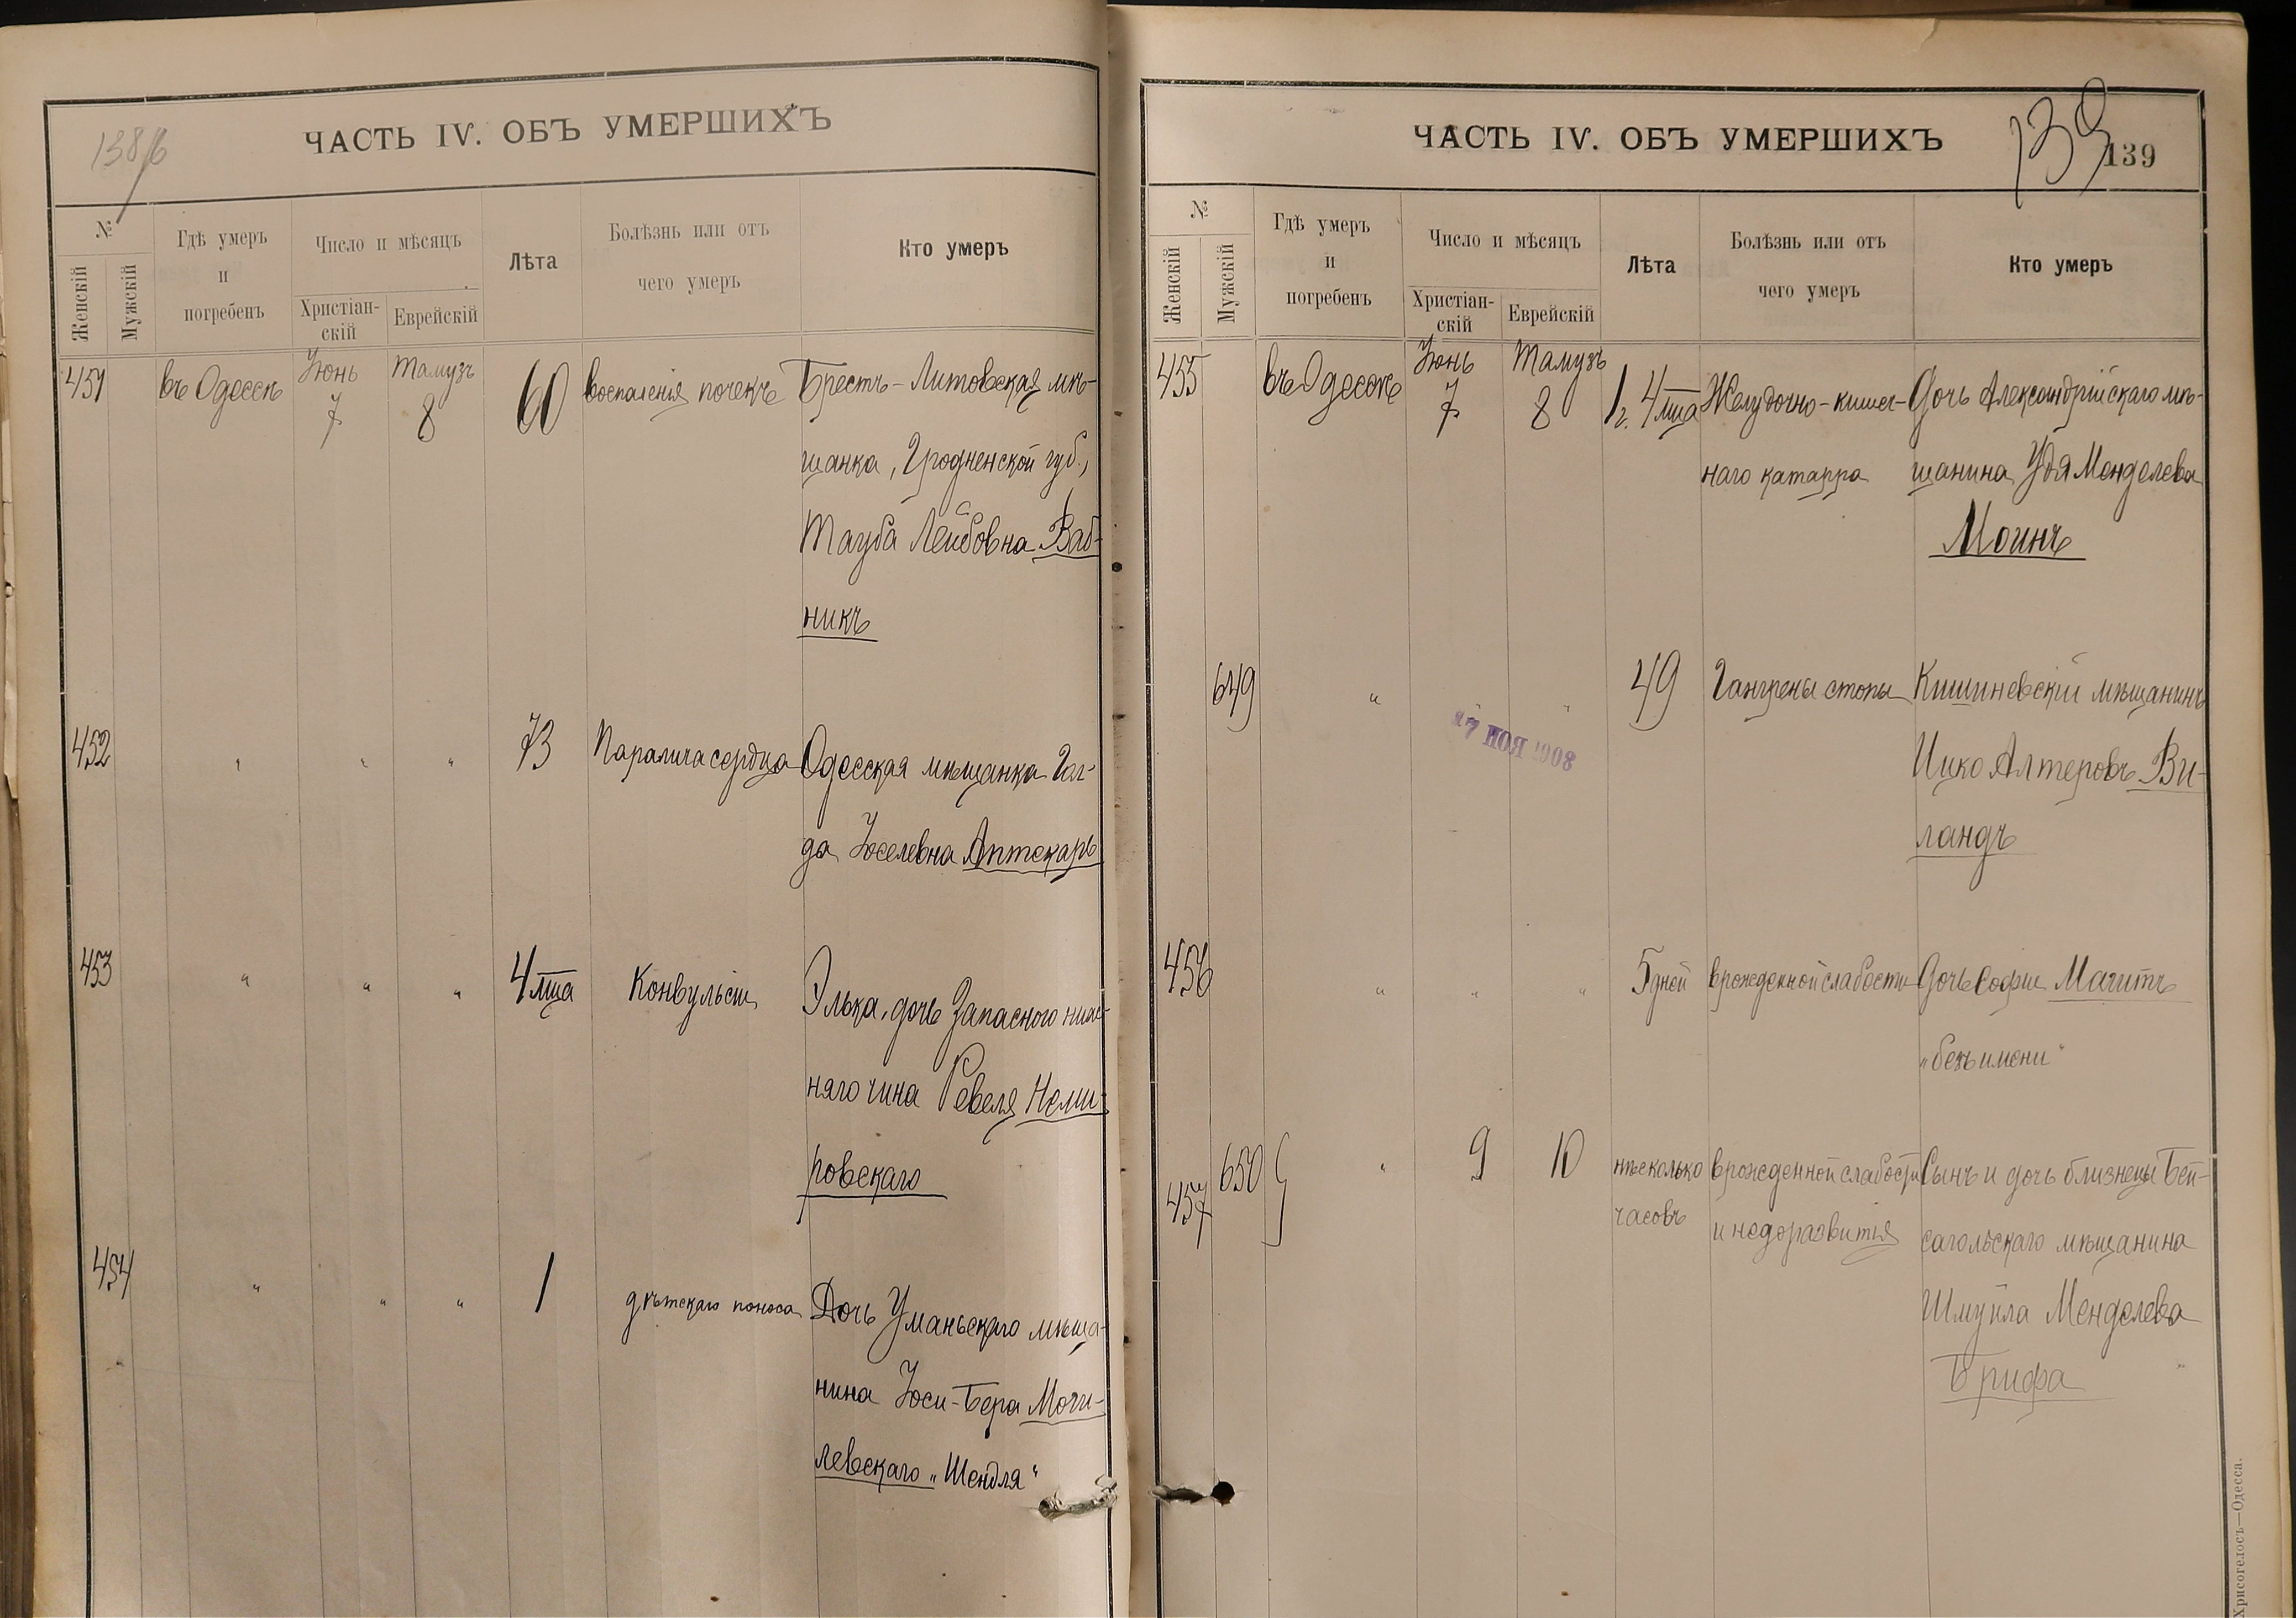 138/б
ЧАСТЬ IV. ОБЪ УМЕРШИХЪ
№
Женскій
Мужскій
Гдѣ умеръ
и
погребенъ
Число и мѣсяцъ
Христіан-
скій
Еврейскій
Лѣта
Болѣзнь или отъ
чего умеръ
Кто умеръ
451 въ Одессѣ Іюнь 7 Тамузъ 8 60 воспаленія почекъ Брестъ-Литовская мѣ-
щанка, Гродненской губ.,
Тауба Лейбовна Ваб-
никъ
452 " " " 73 Паралича сердца Одесская мѣщанка Гол-
да Іоселевна Аптекарь
453 " " " 4 м-ца Конвульсіи Элька, дочь Запасного ниж-
няго чина Ревеля Неми-
ровскаго
454 " " " 1 дѣтскаго поноса Дочь Уманьскаго мѣща-
нина Іоси-Бера Моги-
левскаго "Шендля"
ЧАСТЬ IV. ОБЪ УМЕРШИХЪ
139
139
№
Женскій
Мужскій
Гдѣ умеръ
и
погребенъ
Число и мѣсяцъ
Христіан-
скій
Еврейскій
Лѣта
Болѣзнь или отъ
чего умеръ
Кто умеръ
455 въ Одессѣ Іюнь 7 Тамузъ 8 1 г. 4 м-ца Желудочно-кишеч- Дочь Александрійскаго мѣ-
наго катарра щанина Удя Менделева
Моинъ
649 " " " 49 Гангрены стопы Кишиневскій мѣщанинъ
17 НОЯ 1908
Ицко Алтеровъ Ви-
ландъ
456 " " " 5 дней врожденной слабости Дочь Софіи Магитъ
"безъ имени"
457 650 " 9 10 нѣсколько врожденной слабости Сынъ и дочь близнецы Бей-
часовъ и недоразвитія сагольскаго мѣщанина
Шмуйла Менделева
Брифа
Хрисогелосъ—Одесса.